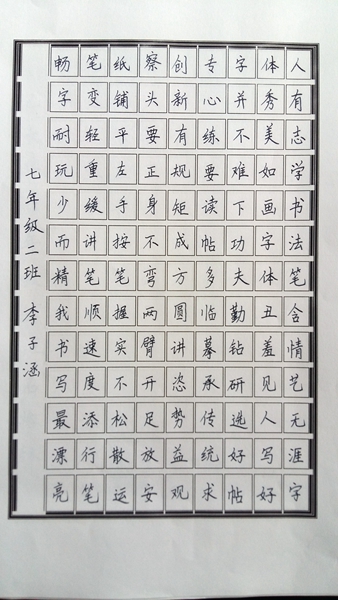 人有志学书法笔含情艺无涯字
体秀美如画字体丑羞见人写好
字并不难下功夫勤钻研选好帖
专心练要读帖多临摹承传统求
创新有规矩成方圆讲恣势益观
察头要正身不弯两臂开足放安
纸铺平左手按笔握实不松散运
笔变轻重缓讲笔顺速度添行笔
畅字耐玩少而精我书写最漂亮
七年级二班 李子涵